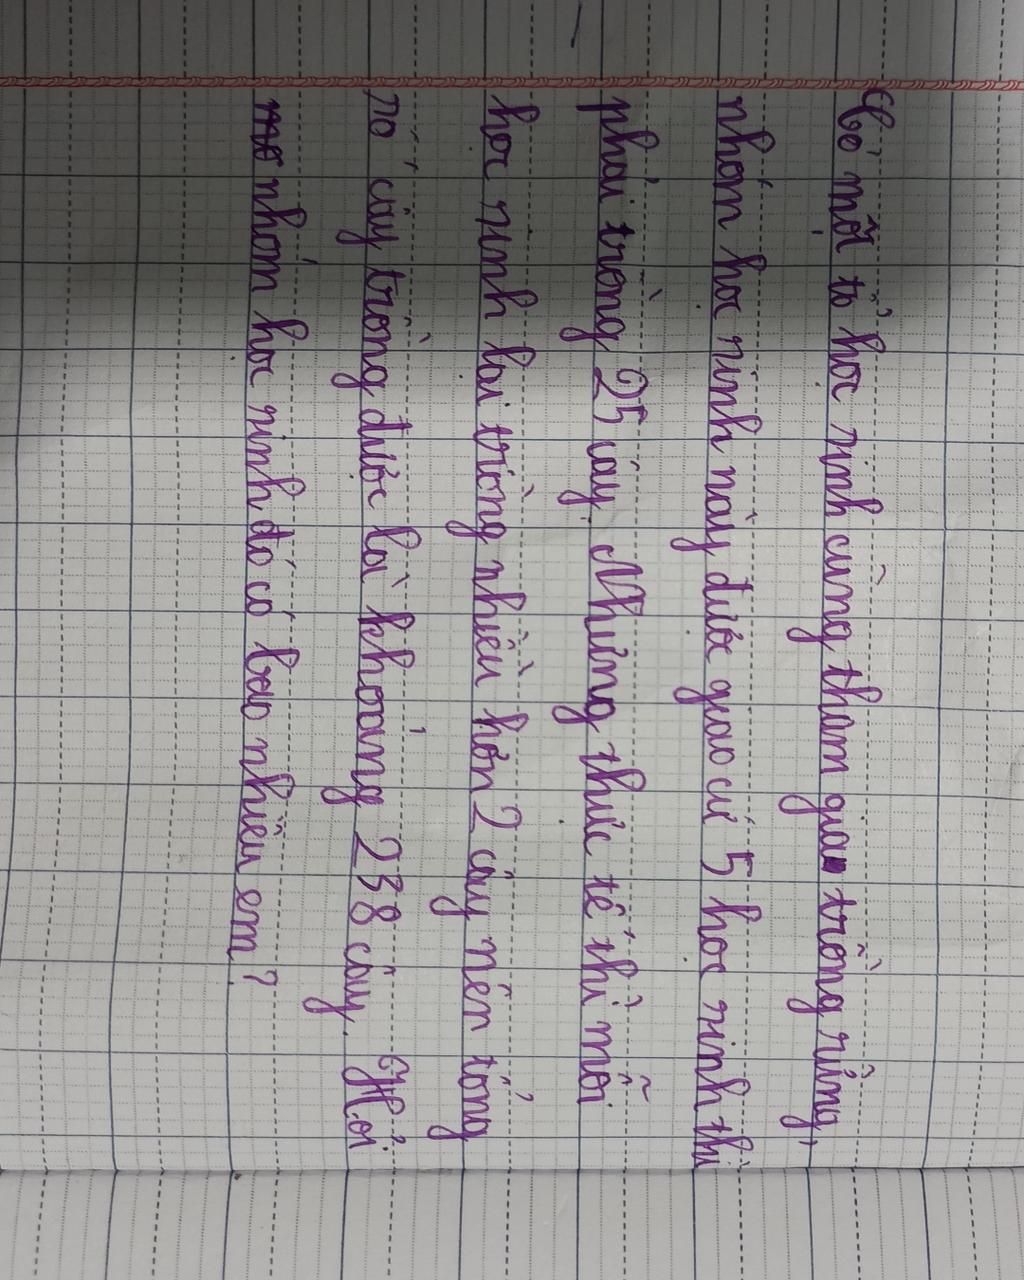 Có một tổ học sinh cũng tham gia trồng rừng,
nhóm học sinh này được giao cứ 5 học sinh thì
phải trồng 25 cây. Nhưng thực tế thì mỗi
học sinh lại trồng nhiều hơn 2 cây nên tổng
số cây trồng được là khoảng 238 cây. Hỏi
nhóm học sinh đó có bao nhiêu em?